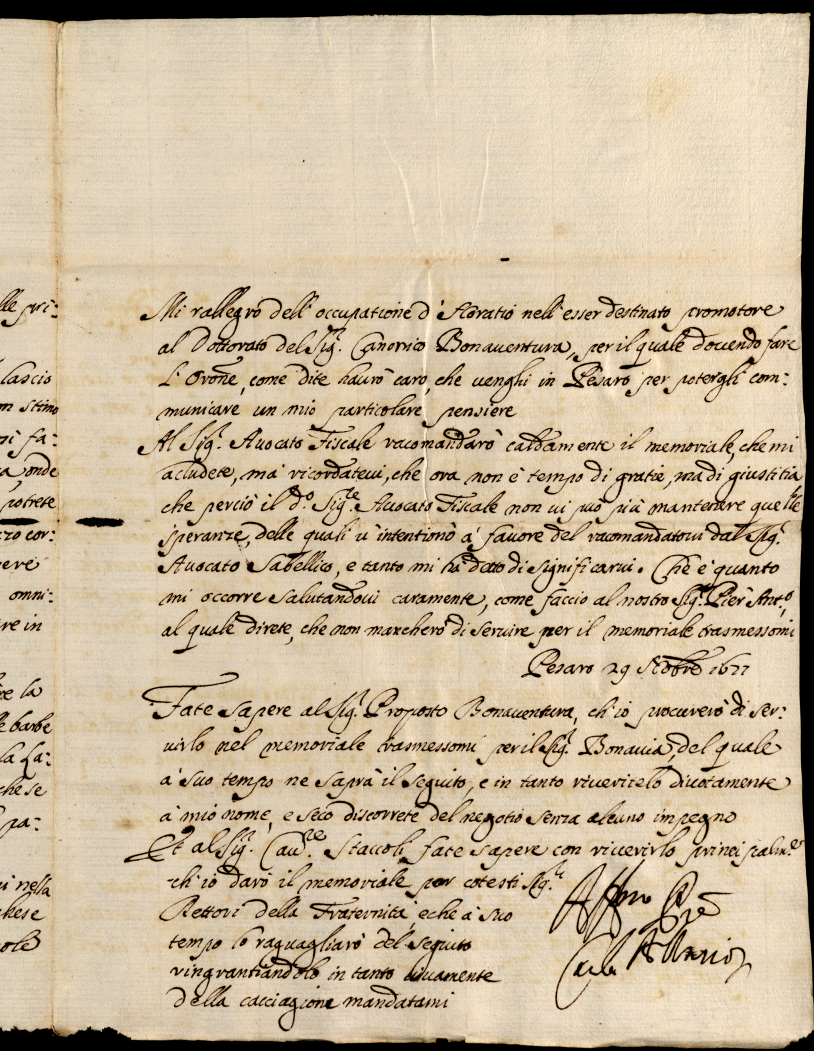 lle pri:
lascio
m stimo
ri fa:
onde
potrete
zo cor:
vere
omni:
re in
re la
e barbe
la La:
che se
pa:
i nella
chese
ole
Mi rallegro dell'occupatione d'Horatio nell'esser destinato promotore
al Dottorato del Sig.r Canonico Bonaventura, per il quale douendo fare
l'Or.one, come dite haurò caro, che uenghi in Pesaro per potergli com:
municare un mio particolare pensiere
Al Sig.r Auocato Fiscale racomandarò caldamente il memoriale, che mi
acludete, mà ricordateui, che ora non è tempo di gratie, ma di giustitia
che perciò il d.o Sig.re Auocato Fiscale non ui può più mantenere quelle
speranze, delle quali u'intentionò à fauore del racomandatoui dal Sig.r
Auocato Sabellico, e tanto mi hà detto di significarui. Che è quanto
mi occorre salutandoui caramente, come faccio al nostro Sig.r Pier Ant.o,
al quale direte, che non mancherò di seruire per il memoriale trasmessomi
Pesaro 29 1677
Fate sapere al Sig.r Proposto Bonauentura, ch'io procurerò di ser:
uirlo nel memoriale trasmessomi per il Sig.r Bonauia, del quale
à suo tempo ne saprà il seguito, e in tanto riueritelo diuotamente
à mio nome, e seco discorrete del negotio senza alcuno impegno
Et al Sig.r Cau.re Staccoli fate sapere con riuerirlo principalm.e
ch'io darò il memoriale per cotesti Sig.ri
Rettori della Fraternità, e che à suo
tempo lo raguagliarò del seguito
ringrantiandolo in tanto uiuamente
della cacciagione mandatami
Aff.mo P.re
Carlo